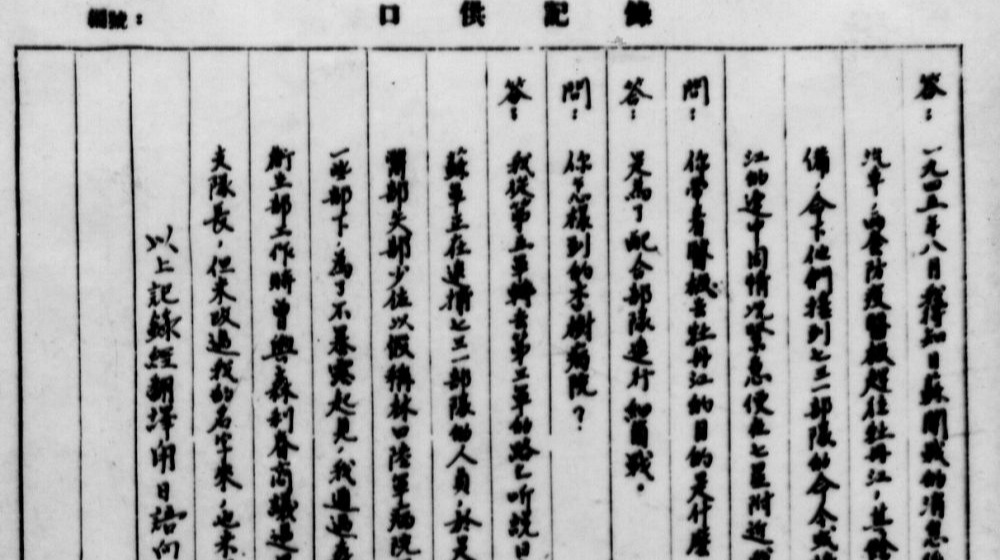 編號：
口供記錄
答：一九四五年八月我得知日蘇開戰的消息
汽車，两套防疫醫極趕往牡丹江，其餘
備，令下他們接到七三一部隊的命令或
江的途中因情况緊急便在七星附近
問：你帶着醫極去牡丹江的目的是什麼
答：是為了配合部隊進行細菌戰。
問：你怎樣到的李樹病院？
答：我從第五軍轉去第三軍的路上听說日
蘇軍正在逮捕七三一部隊的人員，於是
醫部 部少佐以假稱林口陸軍病院
一些部下，為了不暴露起見，我通過
衛生部工作時曾與森利春商議過
支隊長，但未改過我的名字來，也未
以上記錄經翻譯用日語向